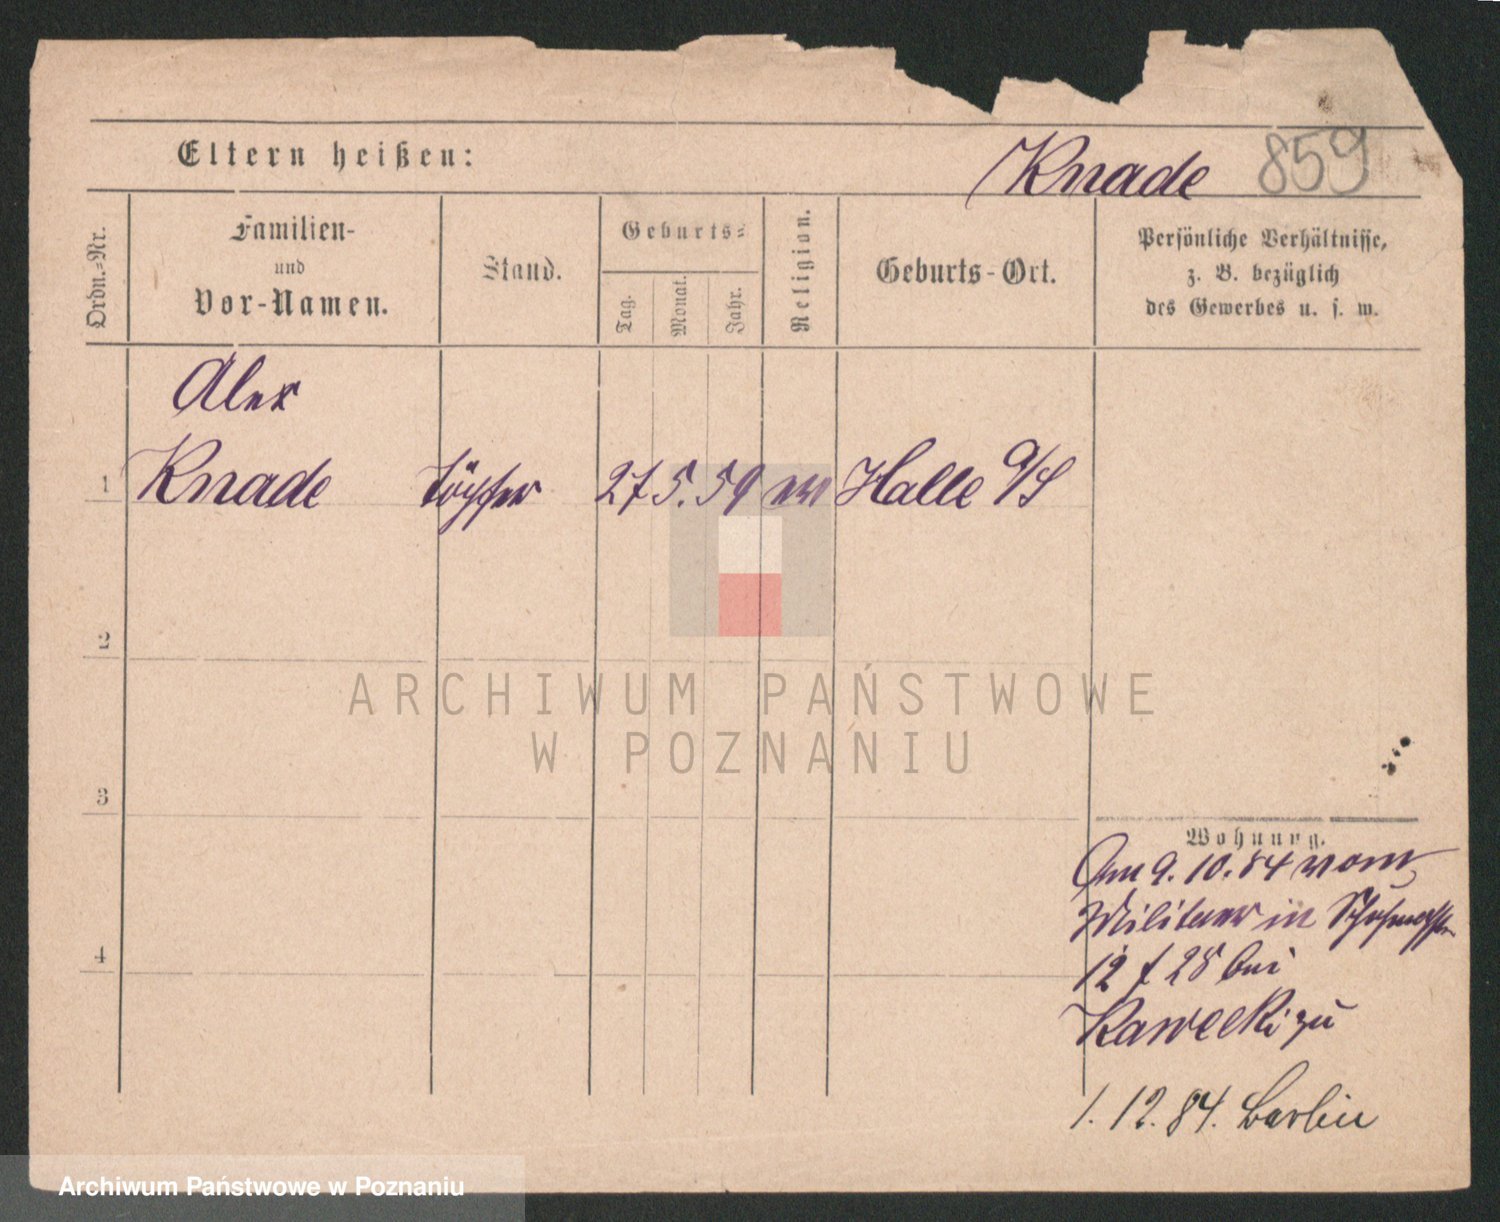 Eltern heißen:
Knade 859
Ordn.-Nr.
Familien-
und
Vor-Namen.
Stand.
Geburts-
Tag.
Monat.
Jahr.
Religion.
Geburts-Ort.
Persönliche Verhältnisse,
z. B. bezüglich
des Gewerbes u. s. w.
Alex
1 Knade Töpfer 27 5. 59 Halle a/S
2
ARCHIWUM PAŃSTWOWE
W POZNANIU
3
Wohnung.
Am 9. 10. 84 vom
Militaer in
12 f 28 bei
Kawecki zu
4
1. 12. 84. Berlin
Archiwum Państwowe w Poznaniu